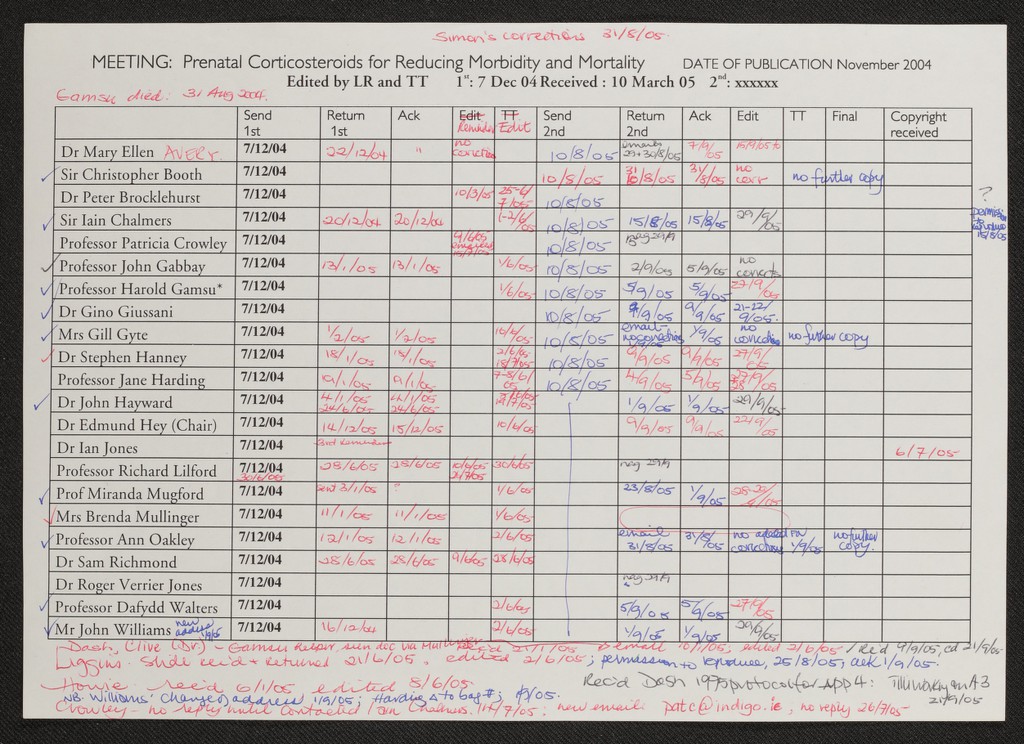 Simon's corrections 31/8/05.
MEETING: Prenatal Corticosteroids for Reducing Morbidity and Mortality DATE OF PUBLICATION November 2004
Edited by LR and TT 1st: 7 Dec 04 Received : 10 March 05 2nd: xxxxxx
Gamsu died: 31 Aug 2004.
Send 1st Return 1st Ack Edit Reminder TT Edit Send 2nd Return 2nd Ack Edit TT Final Copyright received
Dr Mary Ellen AVERY. 7/12/04 22/12/04 " no 10/8/05 29+30/8/05 7/9/05
Sir Christopher Booth 7/12/04 10/8/05 31/8/05 31/8/05 no corr no further copy
Dr Peter Brocklehurst 7/12/04 10/3/05 25-6/7/05 10/8/05
Sir Iain Chalmers 7/12/04 20/12/04 20/12/04 1-2/6/05 10/8/05 15/8/05 15/8/05 29/9/05 ? permission to reproduce 15/8/05
Professor Patricia Crowley 7/12/04 10/8/05 29/9
Professor John Gabbay 7/12/04 13/1/05 13/1/05 1/6/05 10/8/05 2/9/05 5/9/05 no
Professor Harold Gamsu* 7/12/04 1/6/05 10/8/05 5/9/05 5/9/05 27/9/05
Dr Gino Giussani 7/12/04 10/8/05 9/9/05 9/9/05 21-22/9/05
Mrs Gill Gyte 7/12/04 1/2/05 1/2/05 10/6/05 10/8/05 email 1/9/05 no no further copy
Dr Stephen Hanney 7/12/04 18/1/05 18/1/05 2/6/05 10/8/05 9/9/05 9/9/05 27/9/05
Professor Jane Harding 7/12/04 10/1/05 7-8/6/05 10/8/05 4/9/05 5/9/05 27/9/05
Dr John Hayward 7/12/04 4/1/05 24/6/05 4/1/05 24/6/05 1/9/05 1/9/05 29/9/05
Dr Edmund Hey (Chair) 7/12/04 14/12/05 15/12/05 10/6/05 9/9/05 9/9/05 22/9/05
Dr Ian Jones 7/12/04 6/7/05
Professor Richard Lilford 7/12/04 30/6/05 28/6/05 28/6/05 30/6/05 29/9
Prof Miranda Mugford 7/12/04 sent 3/1/05 ? 1/6/05 23/8/05 1/9/05
Mrs Brenda Mullinger 7/12/04 11/1/05 11/1/05 1/6/05
Professor Ann Oakley 7/12/04 12/1/05 12/1/05 2/6/05 email 31/8/05 31/8/05 no corrections 1/9/05 no further copy.
Dr Sam Richmond 7/12/04 28/6/05 28/6/05 9/6/05 28/6/05
Dr Roger Verrier Jones 7/12/04 29/9
Professor Dafydd Walters 7/12/04 2/6/05 5/9/05 5/9/05 27/9/05
Mr John Williams new address 1/9/05 7/12/04 16/12/04 2/6/05 1/9/05 1/9/05 29/9/05
Dash, Clive (Dr) - Gamsu 10/1/05, edited 2/6/05 / Rec'd 9/9/05, ed 21/9/05
Liggins. Slide rec'd + returned 21/6/05. edited 2/6/05; permission to reproduce, 25/8/05; ack 1/9/05.
Howie rec'd 6/1/05 edited 8/6/05. Rec'd Dash 1995 protocol for App 4: A3 21/9/05
NB. Williams' change of address 1/9/05; Harding
Crowley - no reply until contacted Iain Chalmers. 14/7/05; new email: patc@indigo.ie, no reply 26/7/05